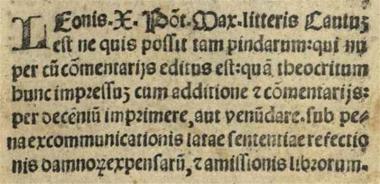 LEonis.X.Põt.Max.litteris Cautuȝ
est ne quis possit tam pindarum:qui nu
per cũ cõmentarijs editus est:quã theocritum
hunc impressuȝ cum additione ⁊ cõmentarijs:
per decẽniũ imprimere, aut venũdare.sub pe-
na excommunicationis latae sententiae refectio
nis damnoꝝ expensarũ, ⁊ amissionis librorum.